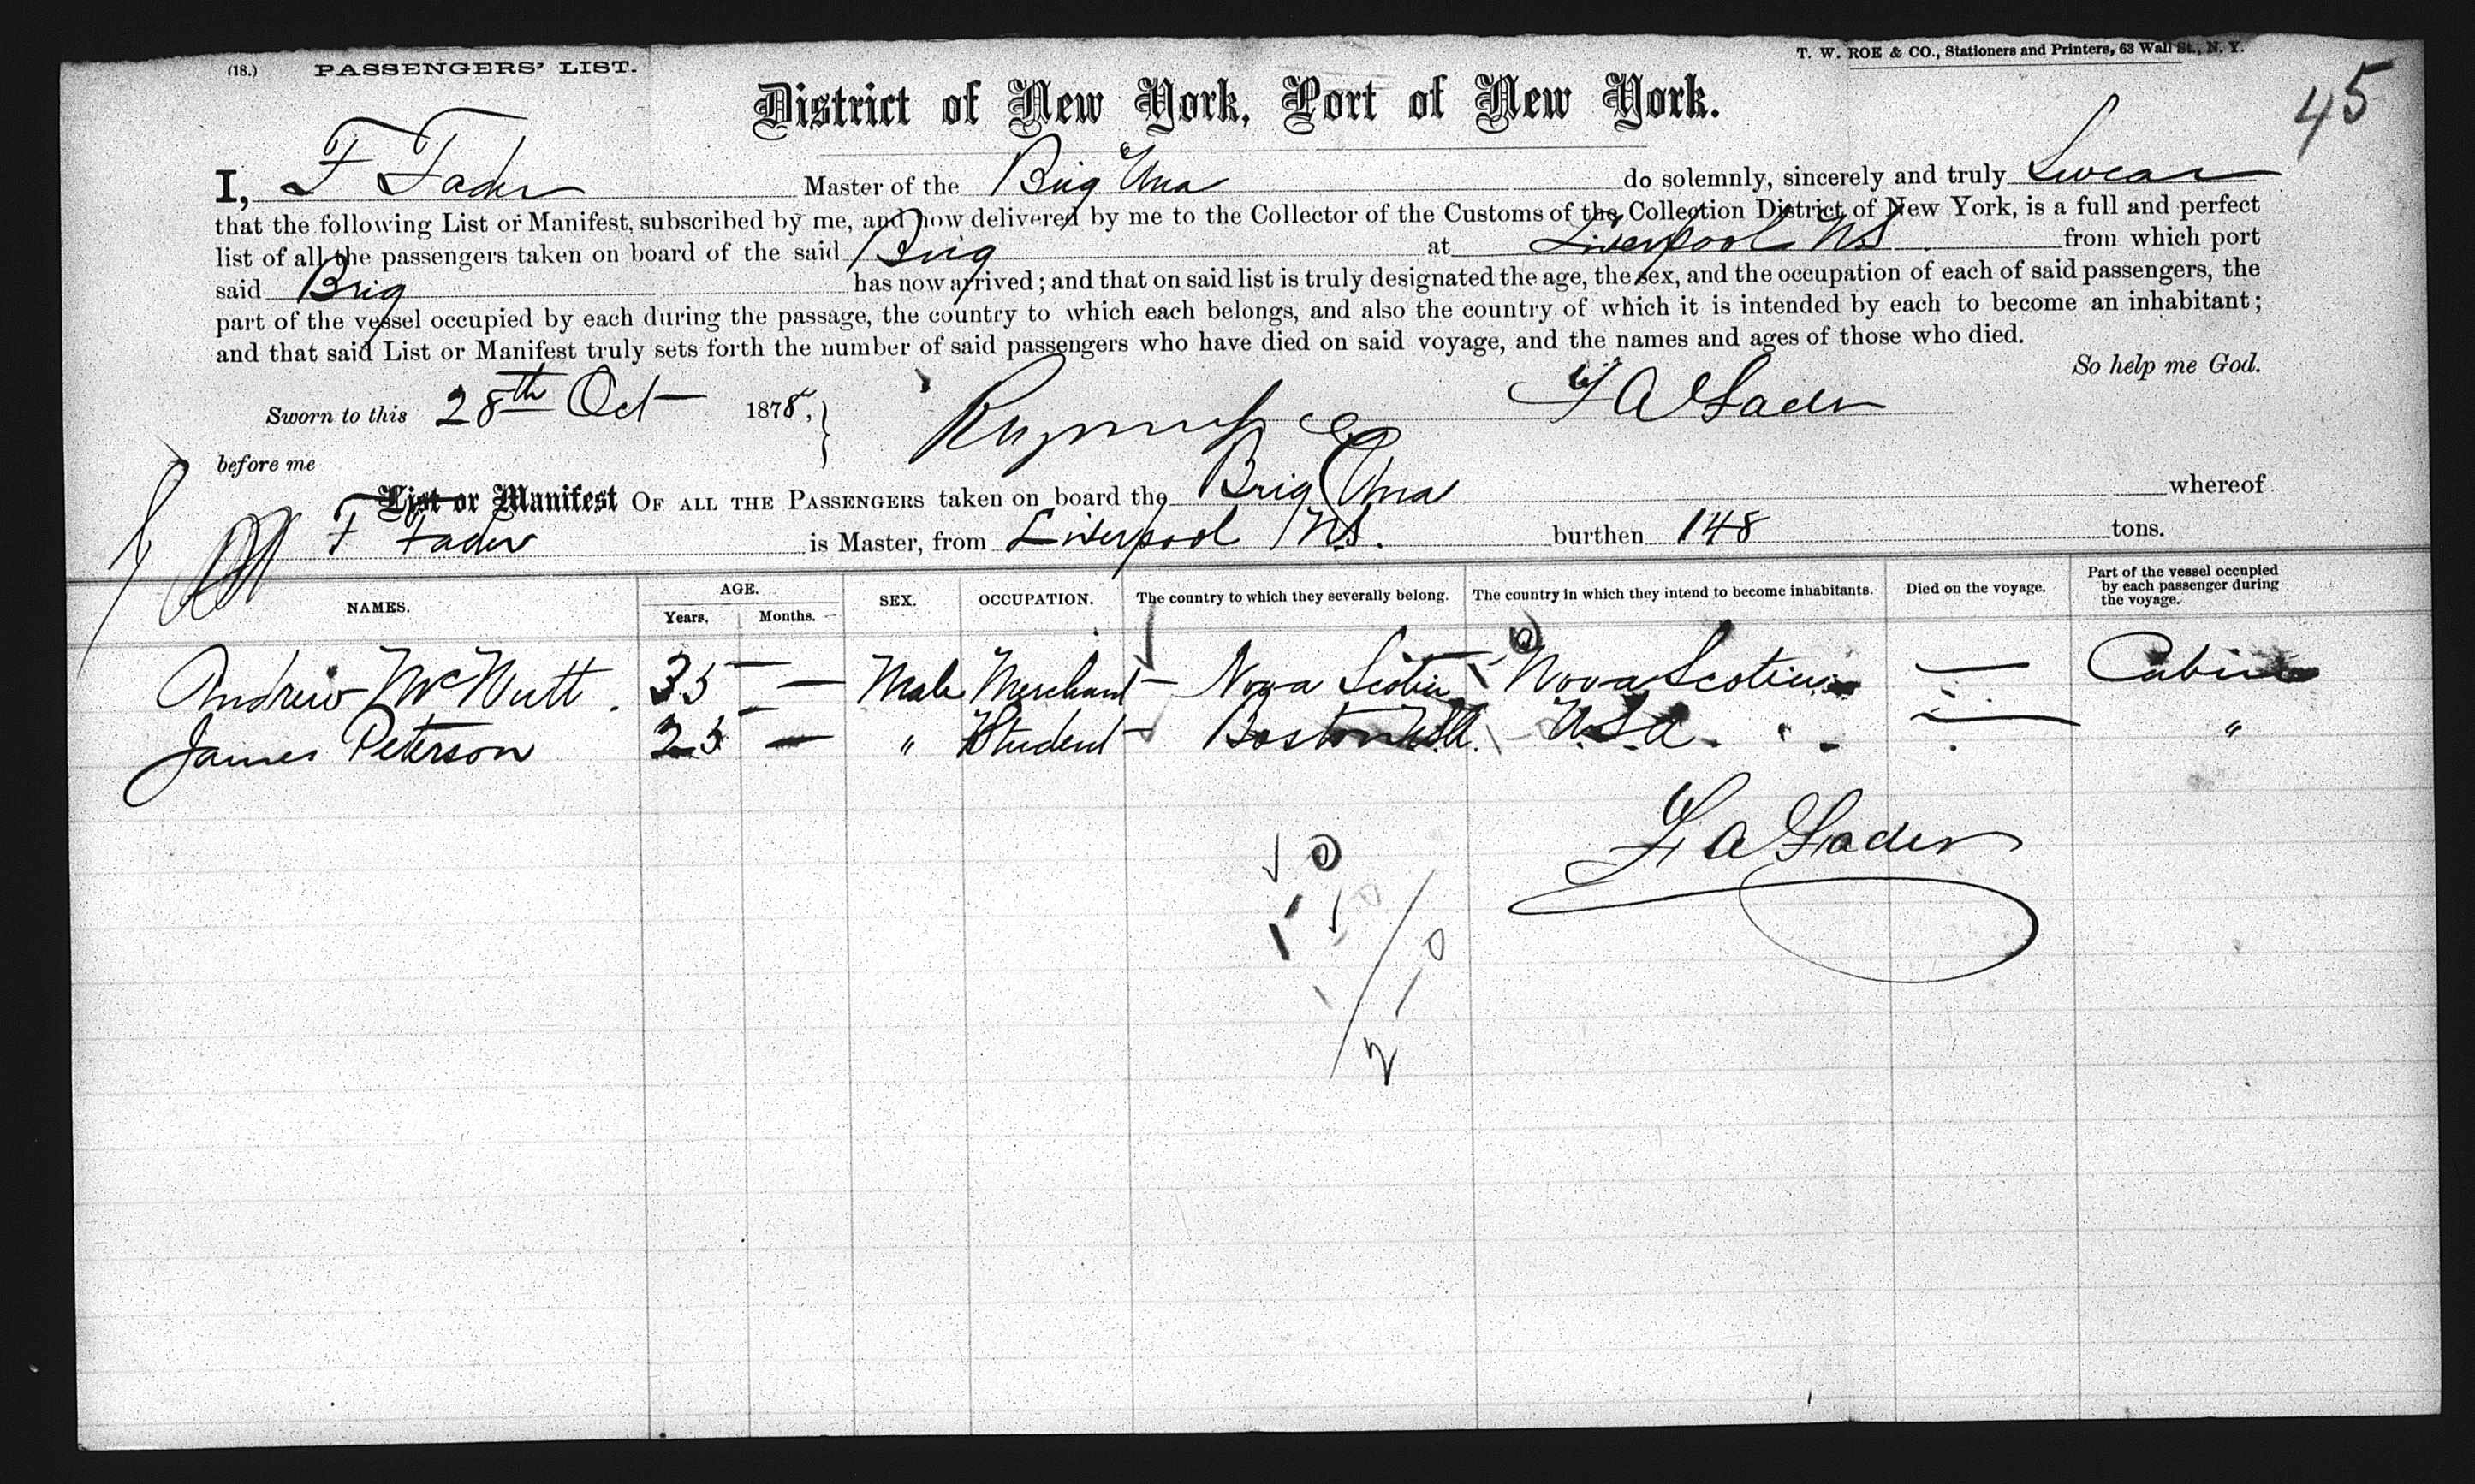 (18.) PASSENGERS' LIST.
T. W. ROE & CO., Stationers and Printers, 63 Wall St., N. Y.
45
District of New York, Port of New York.
I, F Fader Master of the Brig Una do solemnly, sincerely and truly Swear
that the following List or Manifest, subscribed by me, and now delivered by me to the Collector of the Customs of the Collection District of New York, is a full and perfect
list of all the passengers taken on board of the said Brig at Liverpool NS from which port
said Brig has now arrived; and that on said list is truly designated the age, the sex, and the occupation of each of said passengers, the
part of the vessel occupied by each during the passage, the country to which each belongs, and also the country of which it is intended by each to become an inhabitant;
and that said List or Manifest truly sets forth the number of said passengers who have died on said voyage, and the names and ages of those who died.
So help me God.
Sworn to this 28th Oct 1878, F A Fader
before me
List or Manifest OF ALL THE PASSENGERS taken on board the Brig Una whereof
F Fader is Master, from Liverpool NS. burthen 148 tons.
NAMES. AGE. Years. Months. SEX. OCCUPATION. The country to which they severally belong. The country in which they intend to become inhabitants. Died on the voyage. Part of the vessel occupied by each passenger during the voyage.
Andrew McNutt. 35 — Male Merchant — Nova Scotia Nova Scotia — Cabin
James Peterson 25 — " Student — Boston USA. U.S.A. — "
F A Fader
2